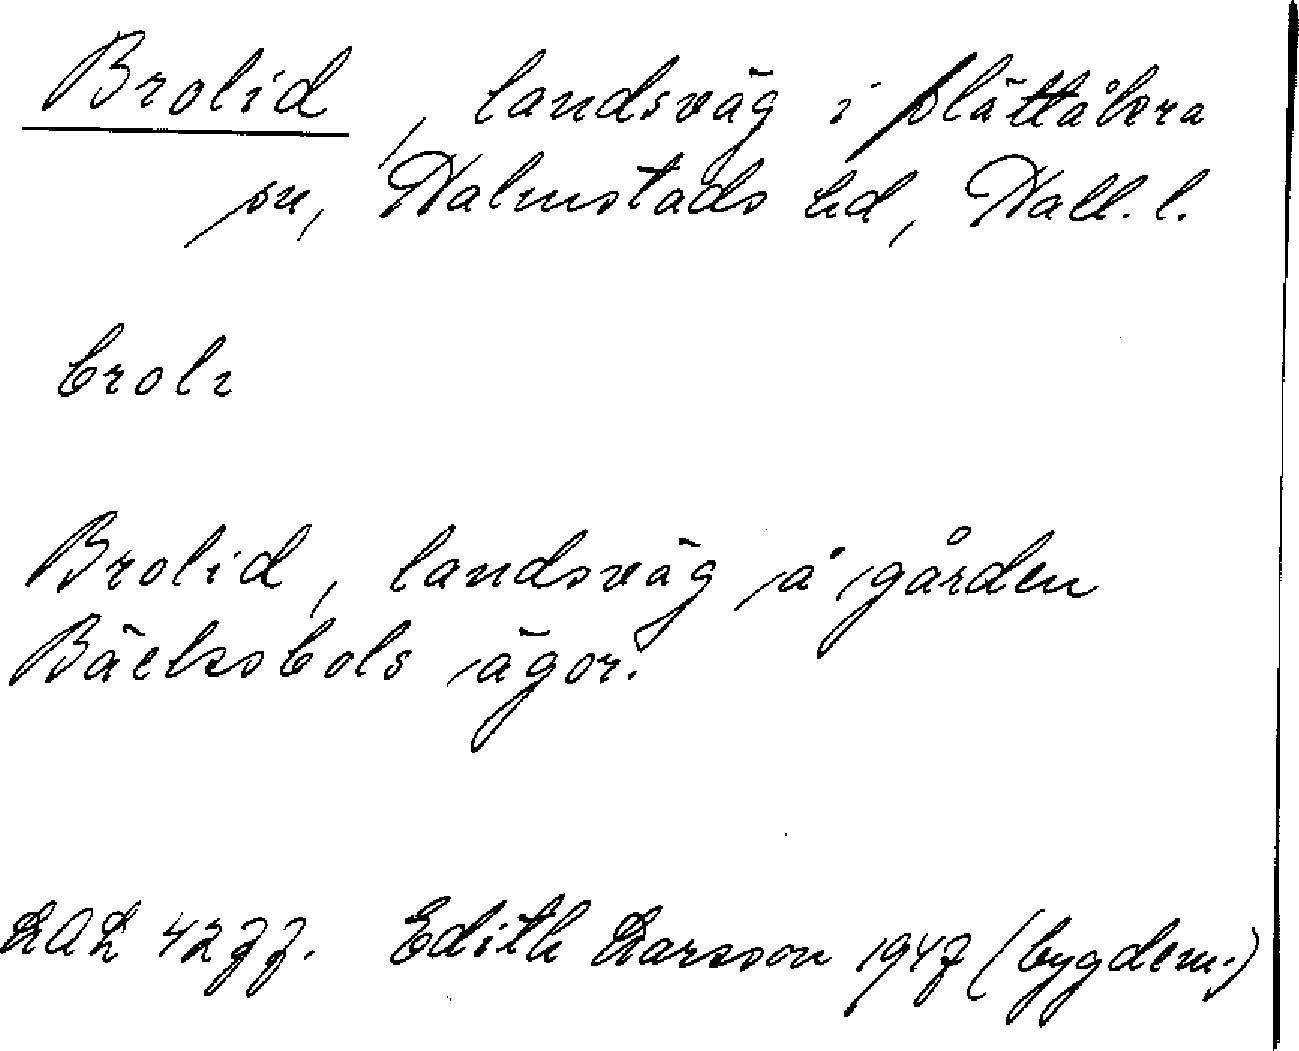 Brolid, landsväg i Slättåkra
sn, Halmstads hd, Hall. l.
broli
Brolid, landsväg å gården
Bäcksbols ägor.
LAL 4277. Edith Larsson 1947 (bygdem.)